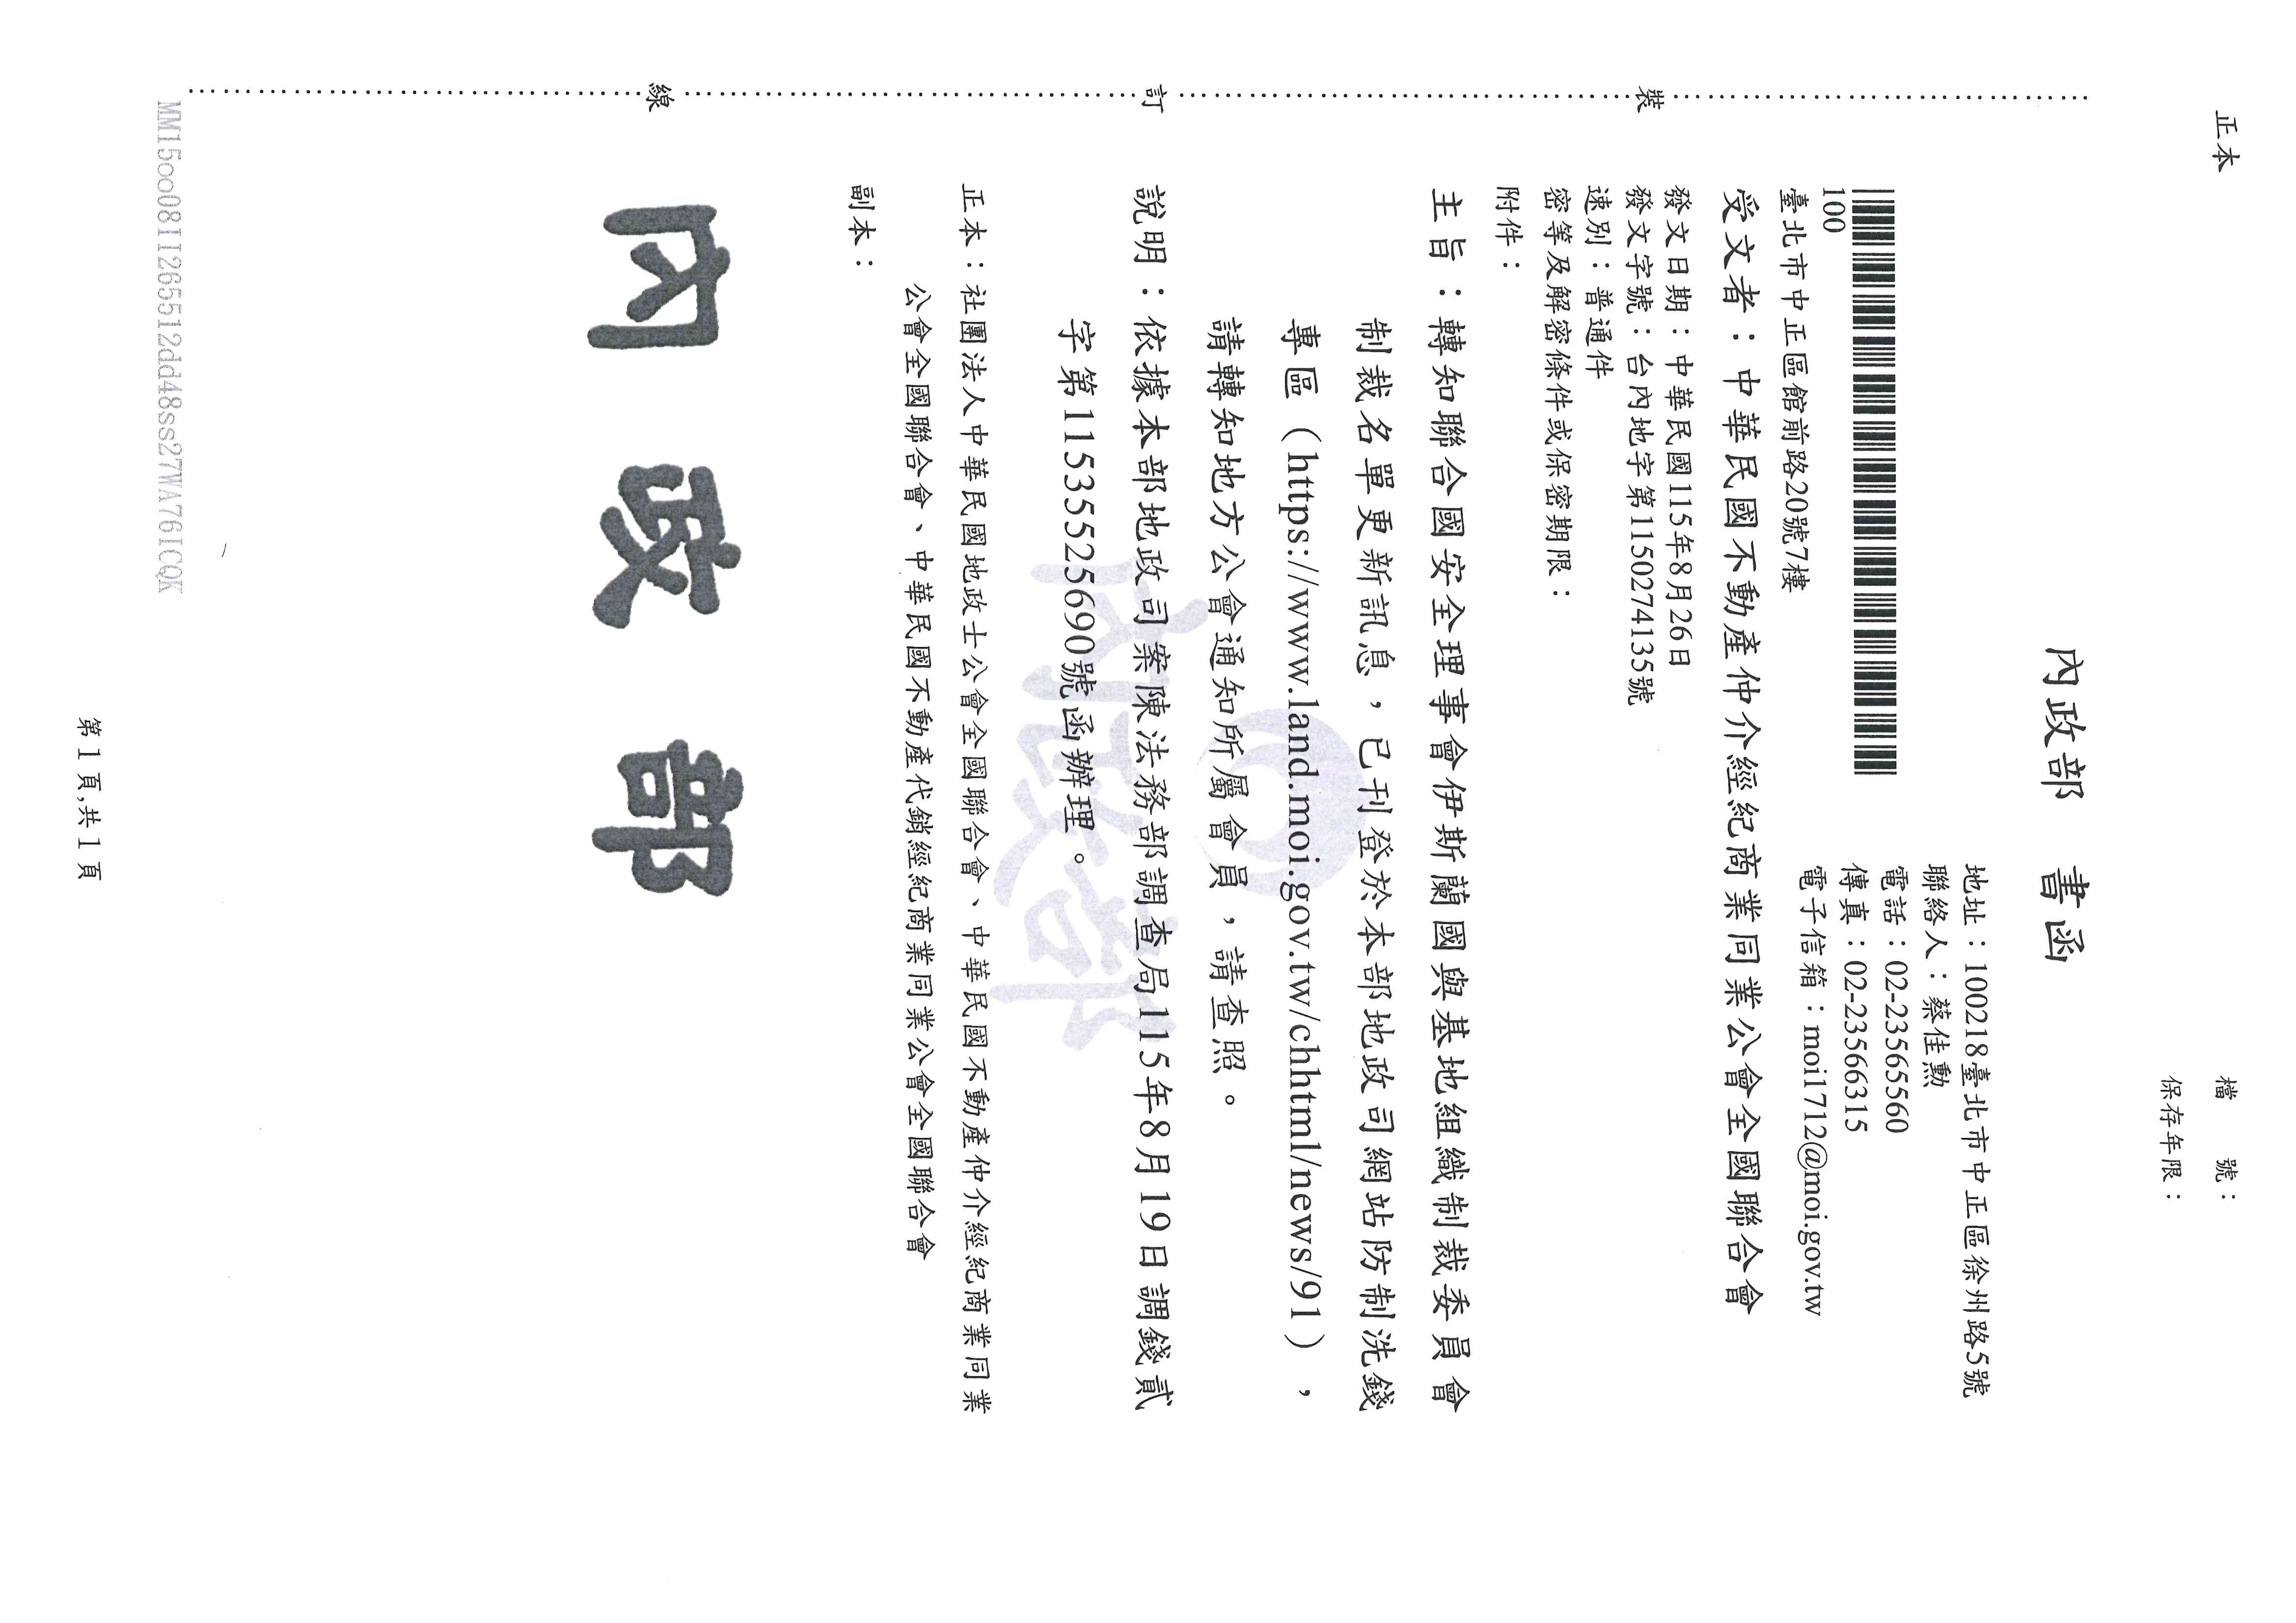 正本
檔　　號：
保存年限：
內政部　書函
地址：100218臺北市中正區徐州路5號
聯絡人：蔡佳勳
電話：02-23565560
傳真：02-23566315
電子信箱：moi1712@moi.gov.tw
100
臺北市中正區館前路20號7樓
受文者：中華民國不動產仲介經紀商業同業公會全國聯合會
發文日期：中華民國115年8月26日
發文字號：台內地字第1150274135號
速別：普通件
密等及解密條件或保密期限：
附件：
主旨：轉知聯合國安全理事會伊斯蘭國與基地組織制裁委員會
制裁名單更新訊息，已刊登於本部地政司網站防制洗錢
專區（https://www.land.moi.gov.tw/chhtml/news/91），
請轉知地方公會通知所屬會員，請查照。
說明：依據本部地政司案陳法務部調查局115年8月19日調錢貳
字第11535525690號函辦理。
正本：社團法人中華民國地政士公會全國聯合會、中華民國不動產仲介經紀商業同業
公會全國聯合會、中華民國不動產代銷經紀商業同業公會全國聯合會
副本：
內政部
裝
訂
線
內政部
MM15oo08II265512dd48ss27WA76ICQK
第1頁,共1頁